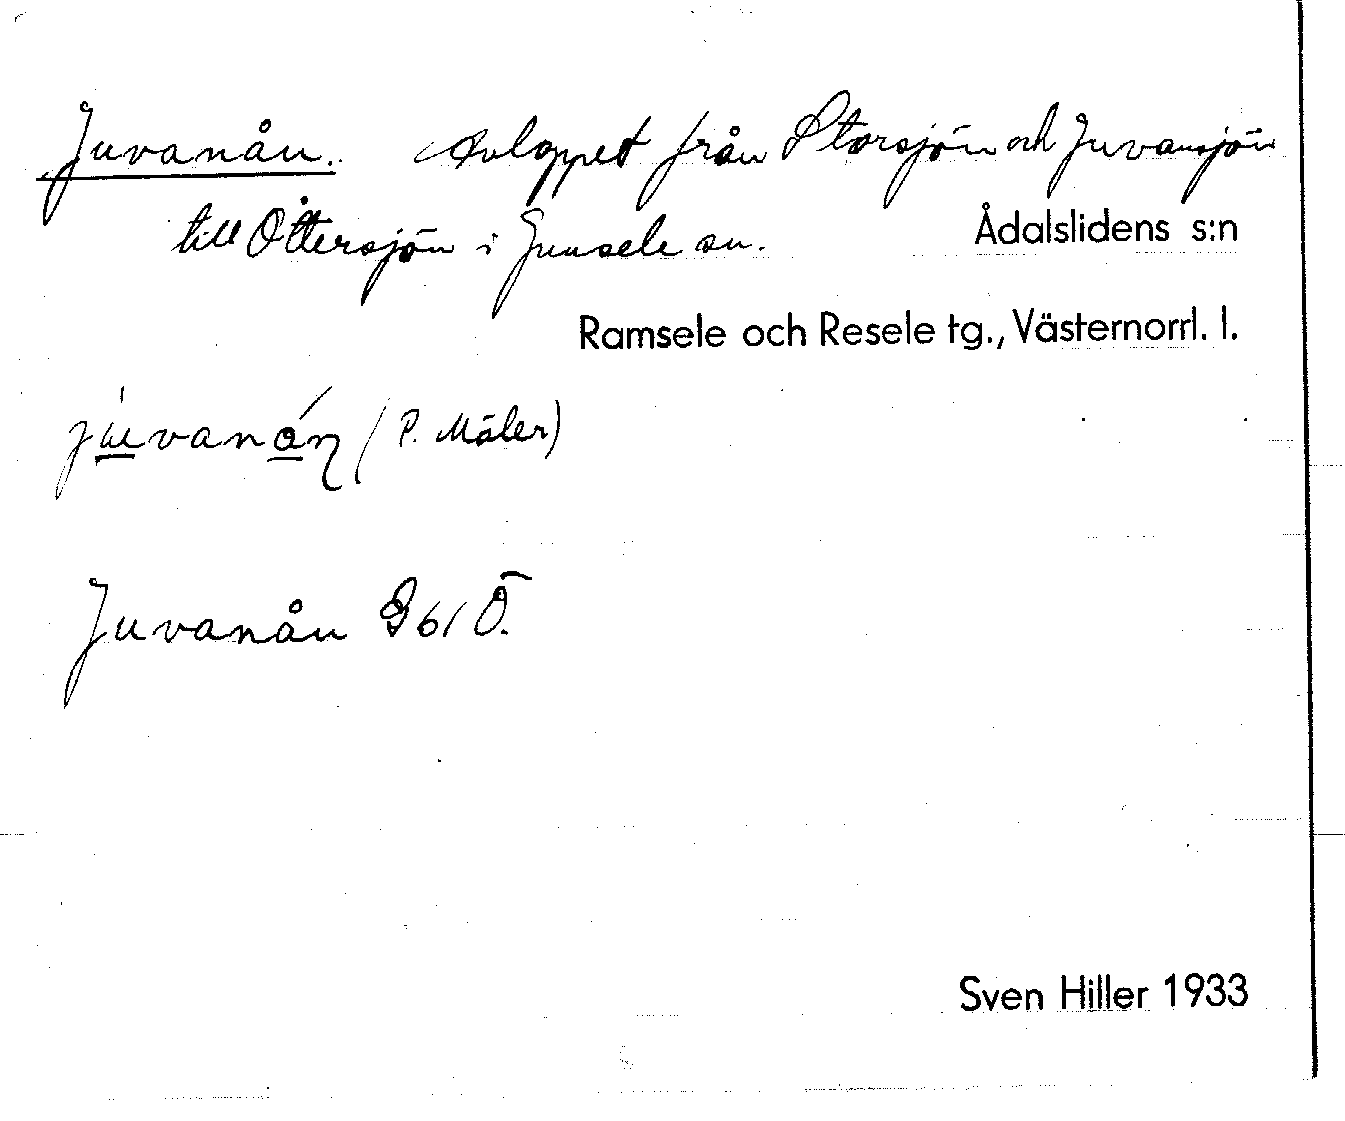 Juvanån. Avloppet från Storsjön och Juvansjön
till Ottersjön i Junsele sn.
Ådalslidens s:n
Ramsele och Resele tg., Västernorrl. l.
(P. Mäler)
Juvanån G61Ö.
Sven Hiller 1933